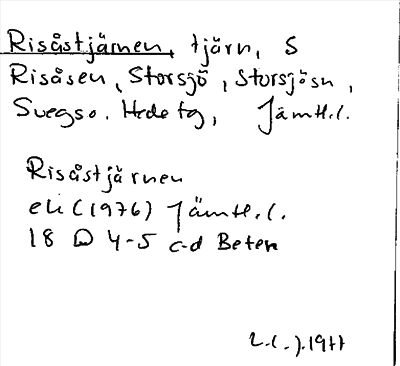 Risåstjärnen, tjärn, S
Risåsen, Storsjö, Storsjösn,
Svegs o. Hede tg, Jämtl.l.
Risåstjärnen
eK (1976) Jämtl.l.
18 D 4-5 c-d Beten
1977